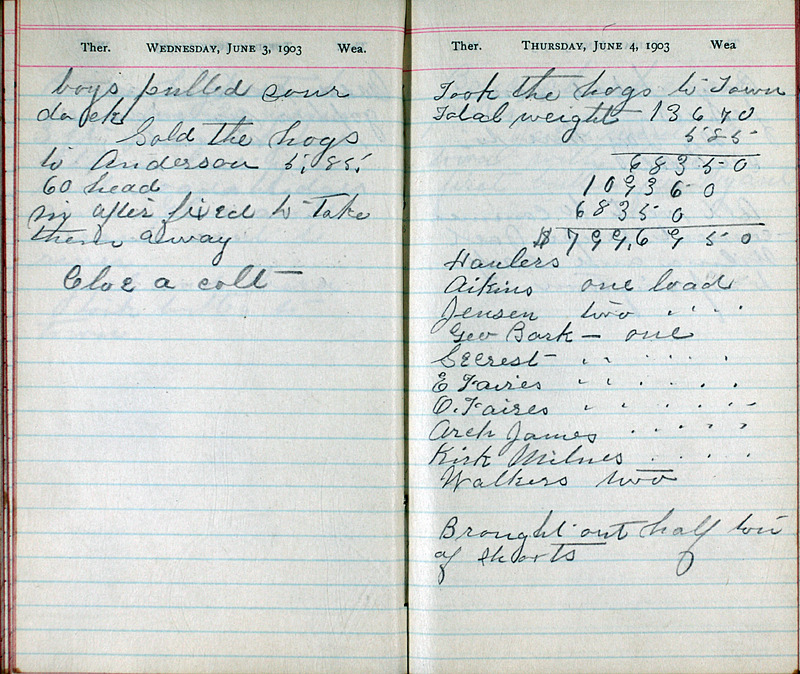 Ther. Wednesday, June 3, 1903 Wea.
boys pulled sour
dock
Sold the hogs
to Anderson 5,85.
60 head
in after fixed to take
them away
Cloe a colt
Ther. Thursday, June 4, 1903 Wea
Took the hogs to Town
Total weight 13670
585
68350
109360
68350
$ 799,6950
Haulers
Aikins one load
Jensen two " "
Geo Bark — one
Secrest " " "
E Faires " " "
O. Faires " " "
Arch James " " "
Kirk Milnes " "
Walkers two
Brought out half ton
of shorts